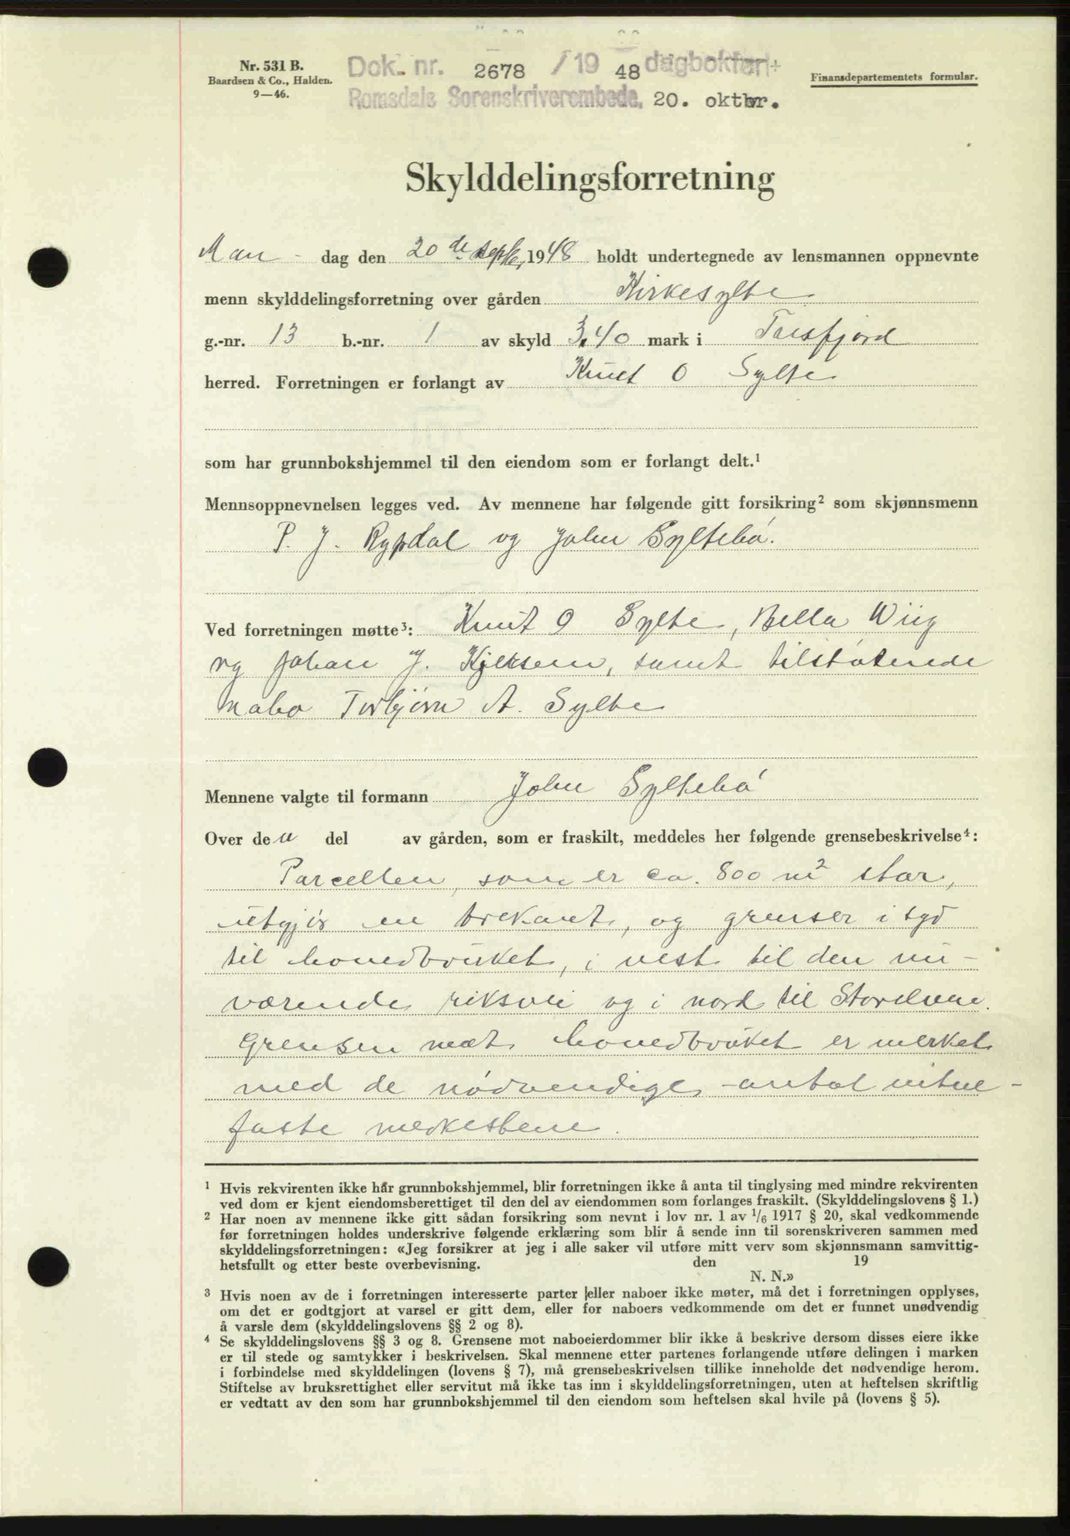 Nr. 531 B.
Baardsen & Co., Halden.
9—46.
Dok. nr. 2678 /19 48 dagbokført
Romsdals Sorenskriverembede, 20. oktbr.
Finansdepartementets formular.
Skylddelingsforretning
Man - dag den 20de septbr 1948 holdt undertegnede av lensmannen oppnevnte
menn skylddelingsforretning over gården Kirkesylte
g.-nr. 13 b.-nr. 1 av skyld 3.40 mark i Tresfjord
herred. Forretningen er forlangt av Knut O Sylte
som har grunnbokshjemmel til den eiendom som er forlangt delt.¹
Mennsoppnevnelsen legges ved. Av mennene har følgende gitt forsikring² som skjønnsmenn
P. J. Rypdal og John Syltebø.
Ved forretningen møtte³: Knut O Sylte, Bella Wiig
og Johan J. Kjelsen, samt tilstøtende
nabo Torbjørn A. Sylte
Mennene valgte til formann John Syltebø
Over den del av gården, som er fraskilt, meddeles her følgende grensebeskrivelse⁴:
Parcellen, som er ca. 800 m² stor,
utgjør en trekant, og grenser i syd
til hovedbruket, i vest til den nu-
værende riksvei og i nord til Storelven.
Grensen mot hovedbruket er merket
med de nødvendige antal
faste merkestene.
¹ Hvis rekvirenten ikke hår grunnbokshjemmel, blir forretningen ikke å anta til tinglysing med mindre rekvirenten
ved dom er kjent eiendomsberettiget til den del av eiendommen som forlanges fraskilt. (Skylddelingslovens § 1.)
² Har noen av mennene ikke gitt sådan forsikring som nevnt i lov nr. 1 av ¹/₆ 1917 § 20, skal vedkommende
før forretningen holdes underskrive følgende erklæring som blir å sende inn til sorenskriveren sammen med
skylddelingsforretningen: «Jeg forsikrer at jeg i alle saker vil utføre mitt verv som skjønnsmann samvittig-
hetsfullt og etter beste overbevisning. den 19
N. N.»
³ Hvis noen av de i forretningen interesserte parter eller naboer ikke møter, må det i forretningen opplyses,
om det er godtgjort at varsel er gitt dem, eller for naboers vedkommende om det er funnet unødvendig
å varsle dem (skylddelingslovens §§ 2 og 8).
⁴ Se skylddelingslovens §§ 3 og 8. Grensene mot naboeierdommer blir ikke å beskrive dersom disses eiere ikke
er til stede og samtykker i beskrivelsen. Skal mennene etter partenes forlangende utføre delingen i marken
i forbindelse med skylddelingen (lovens § 7), må grensebeskrivelsen tillike inneholde det nødvendige herom.
Stiftelse av bruksrettighet eller servitut må ikke tas inn i skylddelingsforretningen, uten at heftelsen skriftlig
er vedtatt av den som har grunnbokshjemmel til den eiendom som heftelsen skal hvile på (lovens § 5).